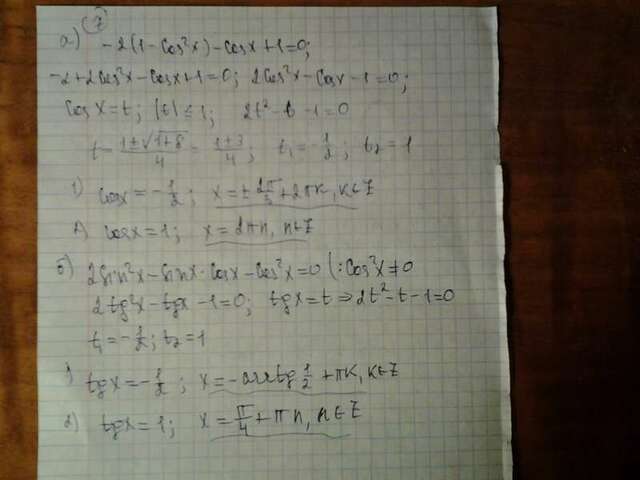 (7)
а) -2(1-cos²x)-cosx+1=0;
-2+2cos²x-cosx+1=0; 2cos²x-cosx-1=0;
cosx=t; |t|≤1; 2t²-t-1=0
t=(1±√(1+8))/4=(1±3)/4; t₁=-1/2; t₂=1
1) cosx=-1/2; x=±2π/3+2πk, k∈Z
2) cosx=1; x=2πn, n∈Z
б) 2sin²x-sinx·cosx-cos²x=0 (:cos²x≠0
2tg²x-tgx-1=0; tgx=t⇒2t²-t-1=0
t₁=-1/2; t₂=1
1) tgx=-1/2; x=-arctg 1/2+πk, k∈Z
2) tgx=1; x=π/4+πn, n∈Z